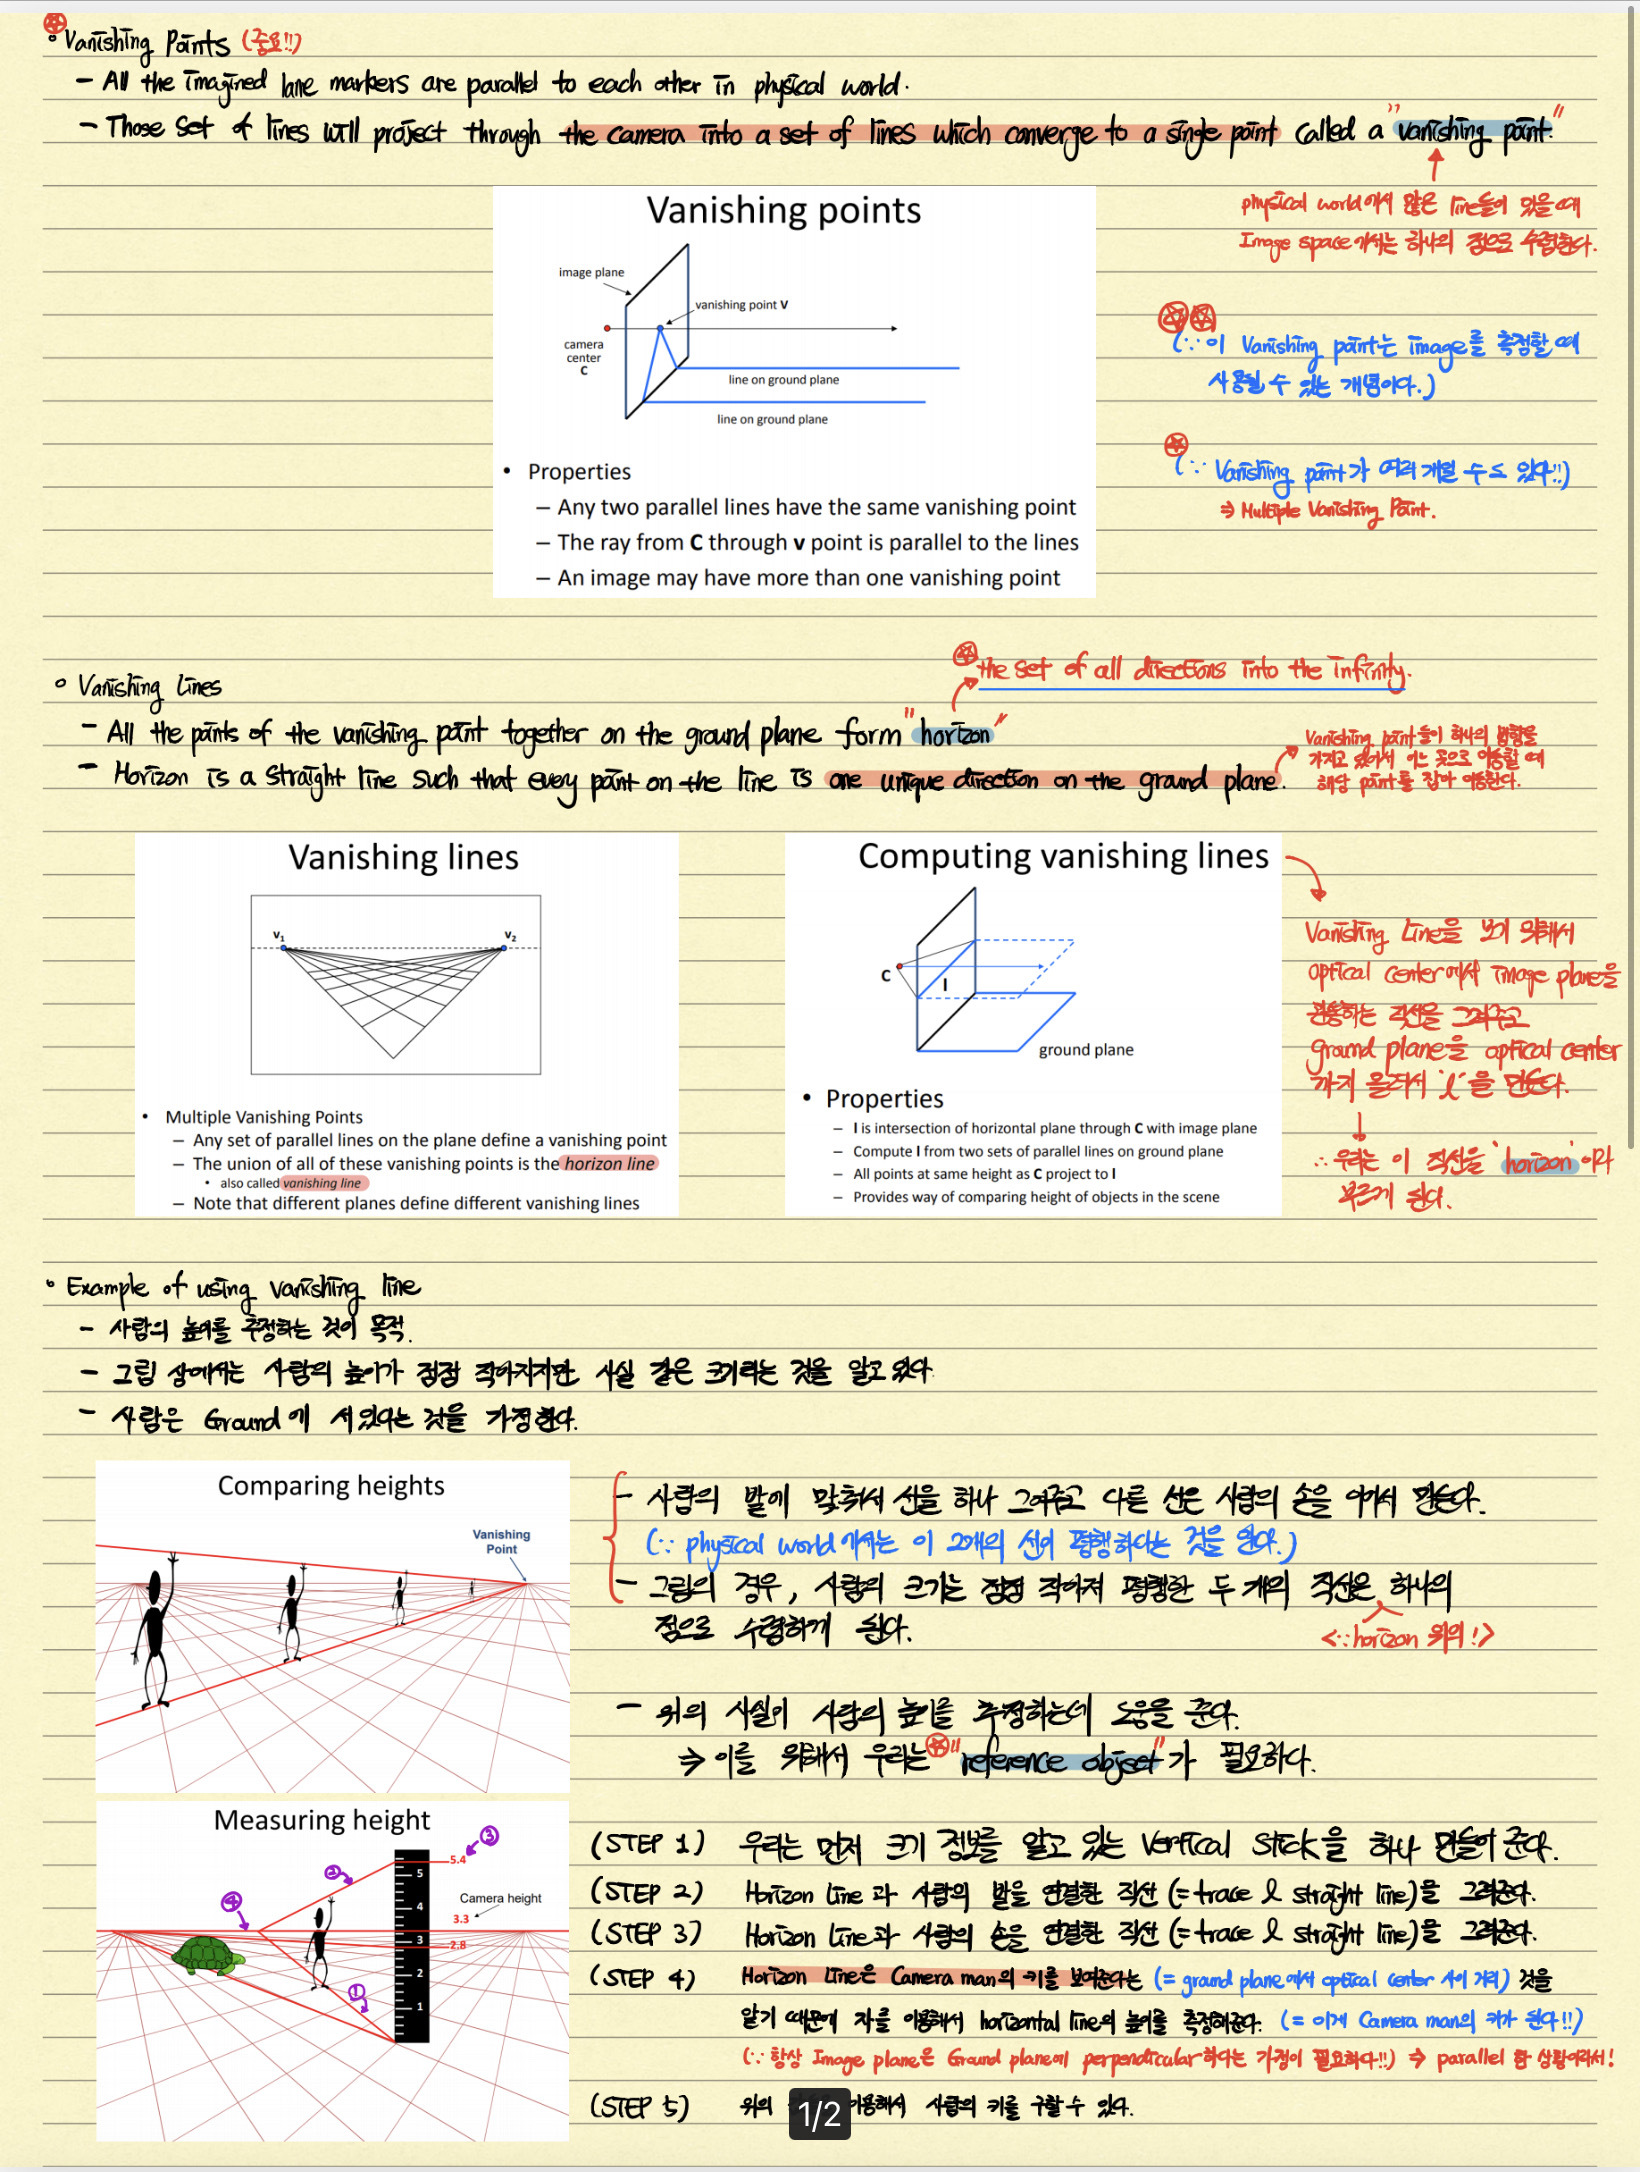 Vanishing Points (중요!!)
- All the imagined lane markers are parallel to each other in physical world.
- Those set of lines will project through the camera into a set of lines which converge to a single point called a "vanishing point."
physical world에서 많은 line들이 있을 때
Image space에서는 하나의 점으로 수렴한다.
Vanishing points
image plane
vanishing point V
camera
center
C
line on ground plane
line on ground plane
(∵ 이 Vanishing point는 image를 측정할 때
사용될 수 있는 개념이다.)
(∵ Vanishing point가 여러 개일 수도 있다!!)
⇒ Multiple Vanishing Point.
• Properties
– Any two parallel lines have the same vanishing point
– The ray from C through v point is parallel to the lines
– An image may have more than one vanishing point
the set of all directions into the infinity.
Vanishing Lines
- All the points of the vanishing point together on the ground plane form "horizon"
- Horizon is a straight line such that every point on the line is one unique direction on the ground plane.
Vanishing point들이 하나의 방향을
가지고 있어서 어느 곳으로 이동할 때
해당 point를 잡아 이동한다.
Vanishing lines
v1
v2
• Multiple Vanishing Points
– Any set of parallel lines on the plane define a vanishing point
– The union of all of these vanishing points is the horizon line
• also called vanishing line
– Note that different planes define different vanishing lines
Computing vanishing lines
C
l
ground plane
• Properties
– l is intersection of horizontal plane through C with image plane
– Compute l from two sets of parallel lines on ground plane
– All points at same height as C project to l
– Provides way of comparing height of objects in the scene
Vanishing Line을 보기 위해서
optical center에서 image plane을
관통하는 직선을 그려주고
ground plane을 optical center
까지 올려서 'l'을 만든다.
∴ 우리는 이 직선을 'horizon'이라
부르게 된다.
Example of using vanishing line
- 사람의 높이를 추정하는 것이 목적.
- 그림 상에서는 사람의 높이가 점점 작아지지만 사실 같은 크기라는 것을 알고 있다.
- 사람은 Ground에 서있다는 것을 가정한다.
Comparing heights
Vanishing
Point
- 사람의 발에 맞춰서 선을 하나 그어주고 다른 선은 사람의 손을 이어서 만든다.
(∵ physical world에서는 이 2개의 선이 평행하다는 것을 안다.)
- 그림의 경우, 사람의 크기는 점점 작아져 평행한 두 개의 직선은 하나의
점으로 수렴하게 된다.
<∵ horizon 위의!>
- 위의 사실이 사람의 높이를 추정하는데 도움을 준다.
⇒ 이를 위해서 우리는 "reference object"가 필요하다.
Measuring height
③
②
④
①
5
4
3
2
1
5.4
Camera height
3.3
2.8
(STEP 1) 우리는 먼저 크기 정보를 알고 있는 Vertical Stick을 하나 만들어 준다.
(STEP 2) Horizon Line과 사람의 발을 연결한 직선 (= trace l straight line)을 그려준다.
(STEP 3) Horizon Line과 사람의 손을 연결한 직선 (= trace l straight line)을 그려준다.
(STEP 4) Horizon Line은 Camera man의 키를 보여준다는 (= ground plane에서 optical center 사이 거리) 것을
알기 때문에 자를 이용해서 horizontal line의 높이를 측정해준다. (= 이게 Camera man의 키가 된다!!)
(∵ 항상 Image plane은 Ground plane에 perpendicular하다는 가정이 필요하다!!) ⇒ parallel 한 상황이라서!
(STEP 5) 위의 이용해서 사람의 키를 구할 수 있다.
1/2